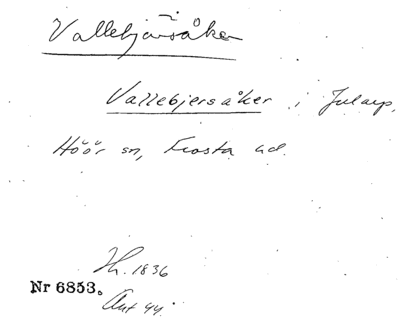 Vallebjärsåker
Vallebjersåker i Jularp,
Höör sn, Frosta hd.
Hr. 1836
Nr 6853.
Ant 44.